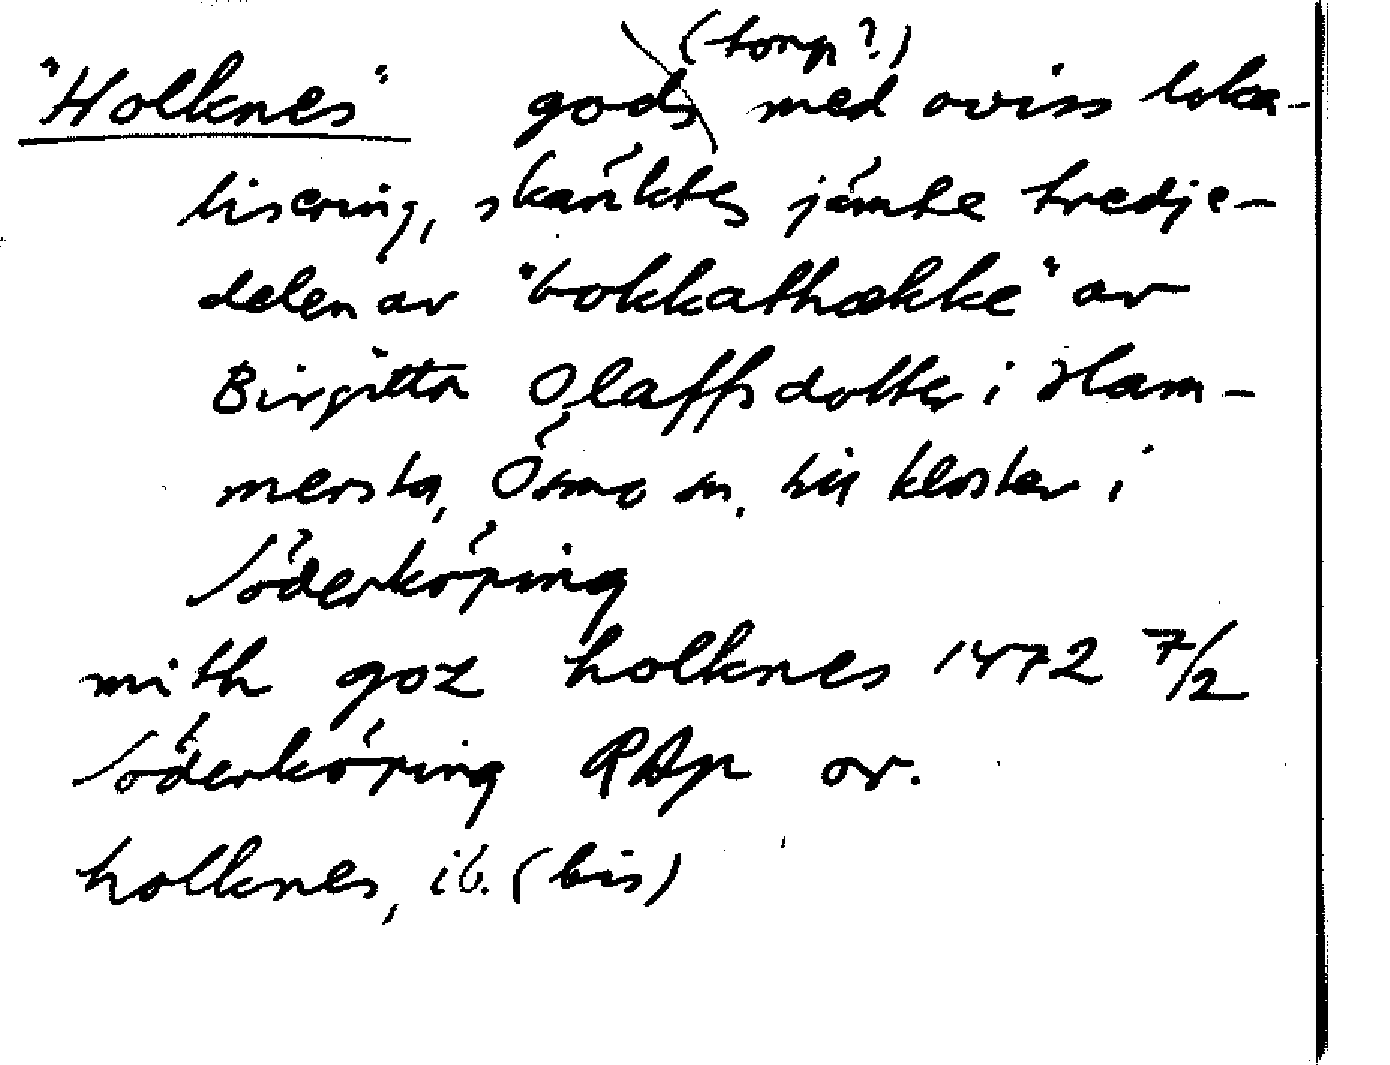 (torp?)
"Holknes" gods med oviss loka-
lisering, skänktes jämte tredje-
delen av "bokkathække" av
Birgitta Olaffsdotter i Ham-
mersta, Ösmo sn. till kloster i
Söderköping
mith goz holknes 1472 7/2
Söderköping RAp or.
holknes, ib. (bis)